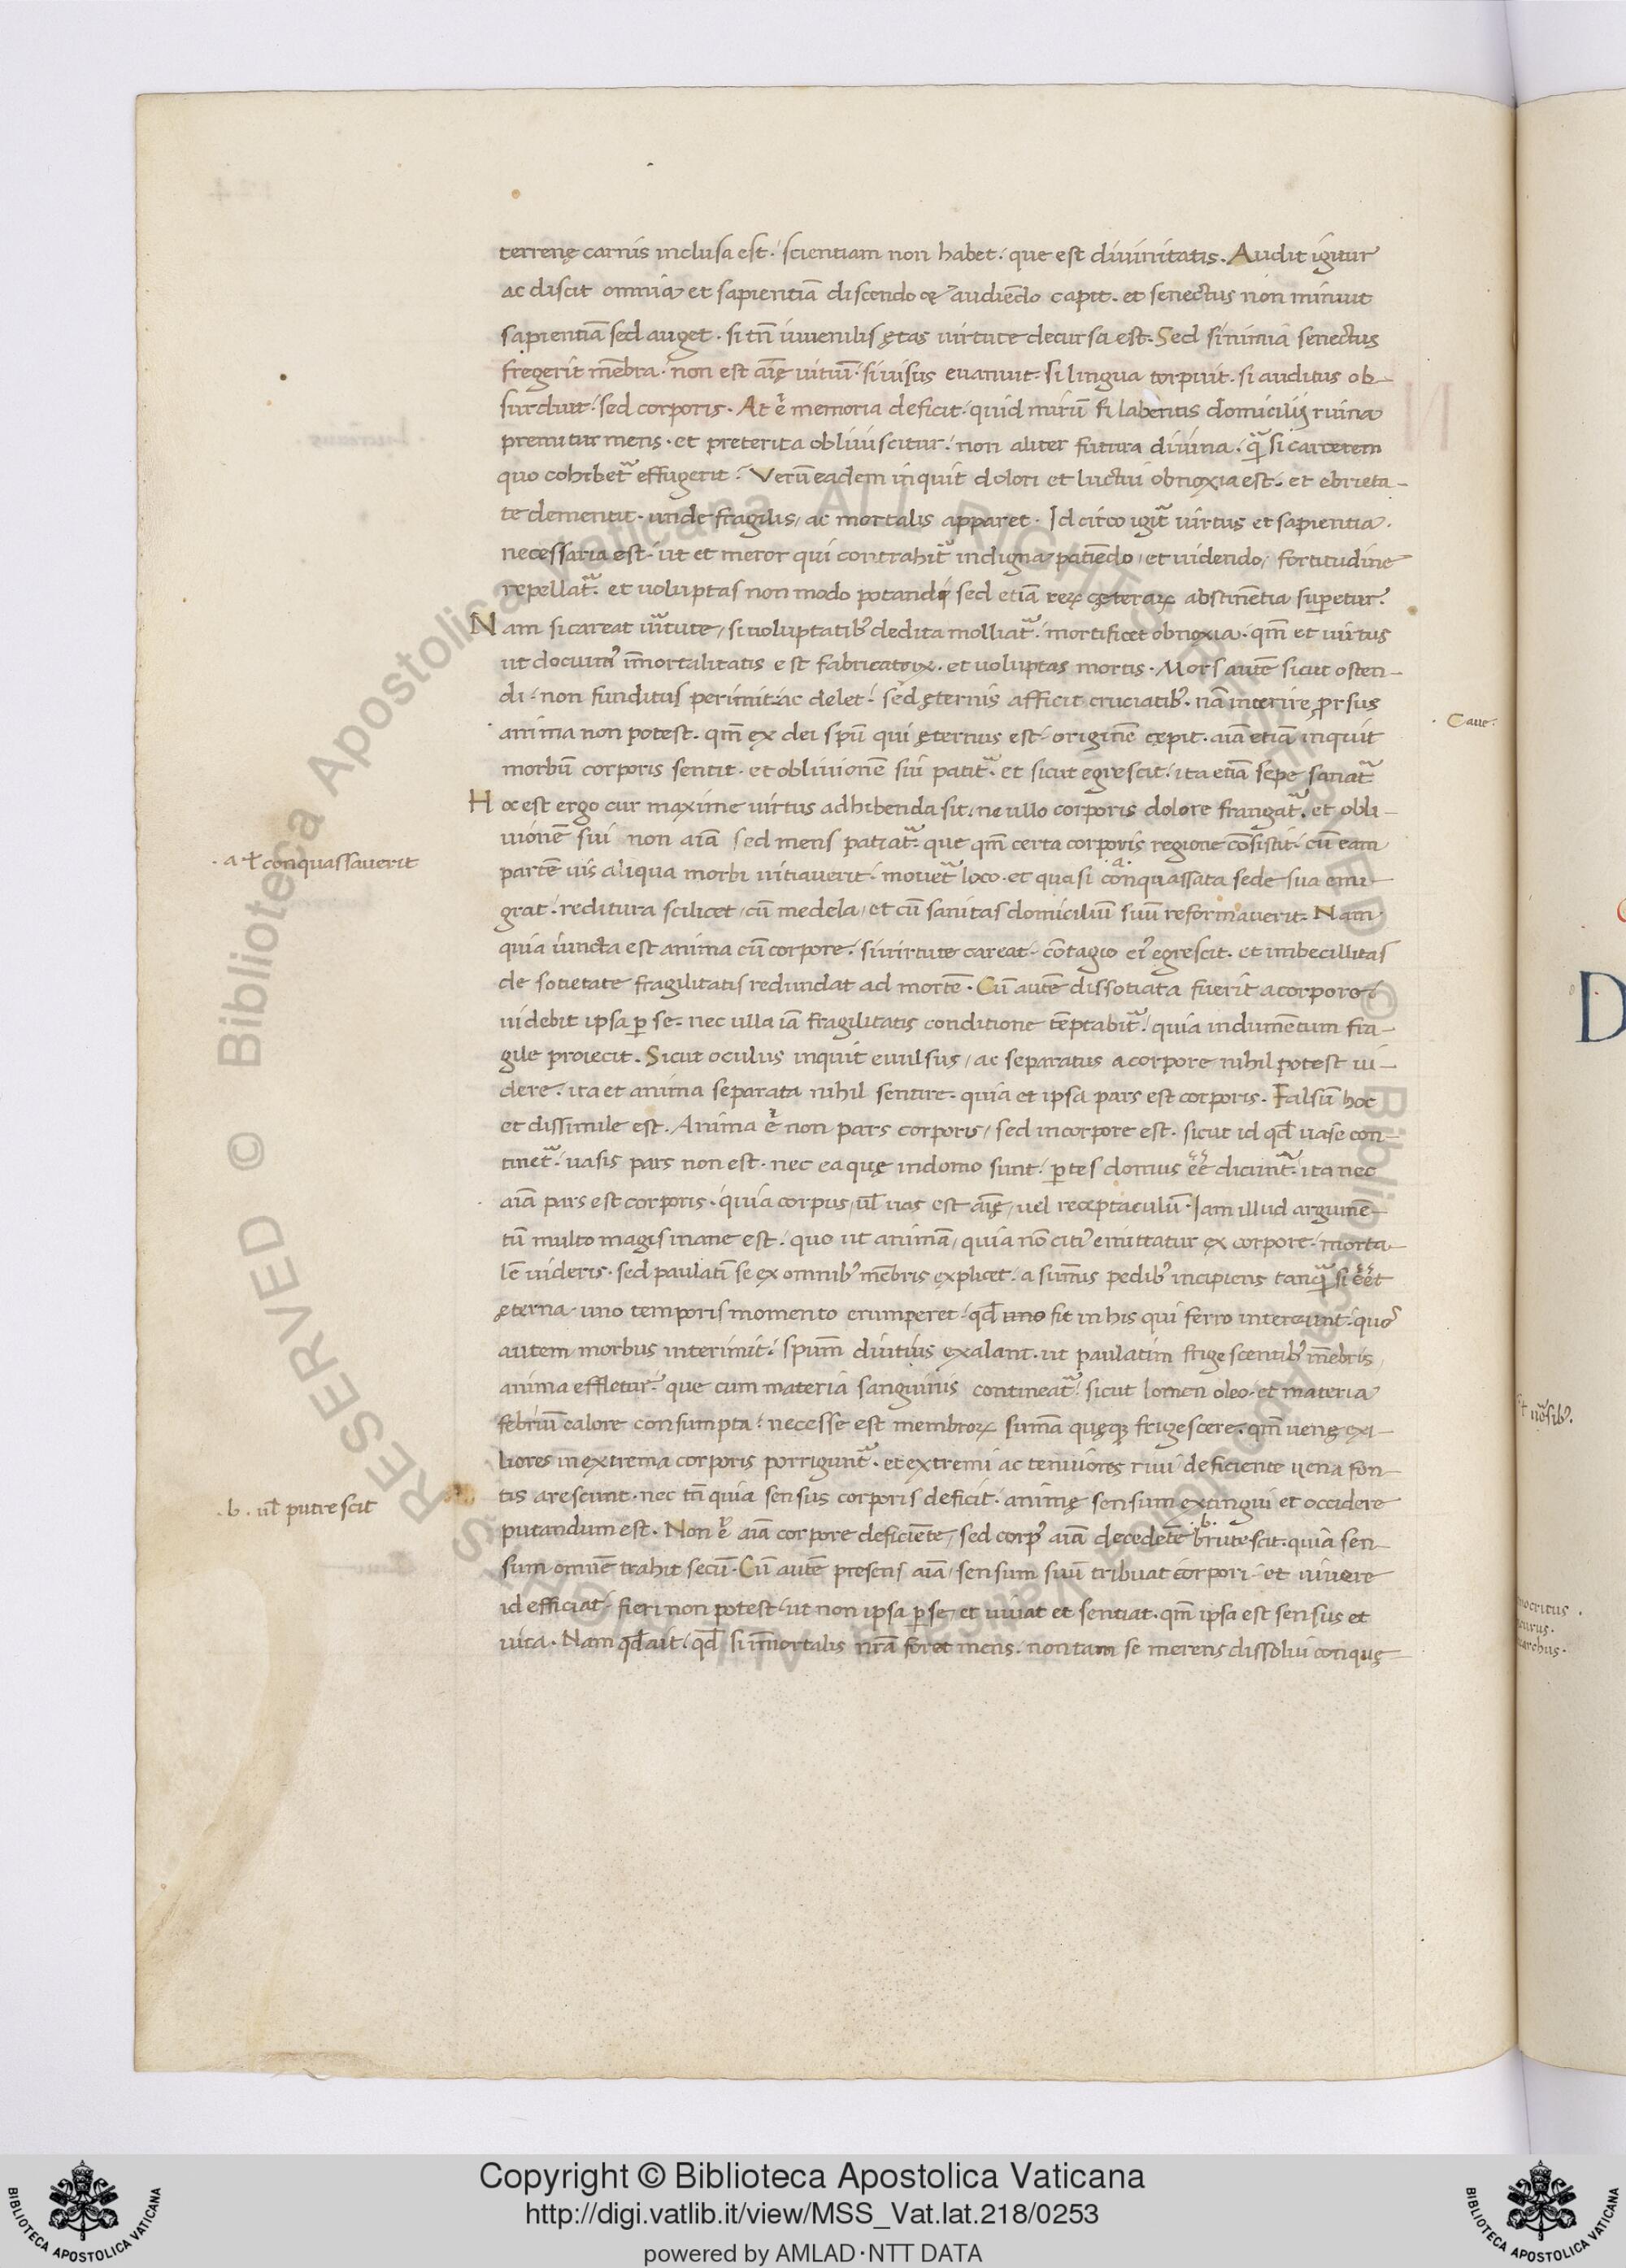 terrenę carnis inclusa est. scientiam non habet. que est divinitatis. Audit igitur
ac discit omnia et sapientiā discendo & audiēdo capit. et senectus non minuit
sapientiā sed auget. si tn̄ iuvenilis ętas virtute decursa est. Sed si nimia senectus
fregerit mēbra. non est aīę vitiū. si visus evanuit. si lingua torpuit. si auditus ob-
surduit. sed corporis. At .n. memoria deficit. quid mirū si labentis domicilij ruina
premitur mens. et preterita obliviscitur. non aliter futura divina. q̄ si carcerem
quo cohibet̄ effugerit. Verū eadem inquit dolori et luctui obnoxia est. et ebrieta-
te dementit. unde fragilis, ac mortalis apparet. Id circo igit̄ virtus et sapientia.
necessaria est. ut et meror qui contrahit̄ indigna patiēdo, et videndo, fortitudine
repellat̄. et voluptas non modo potandi sed etiā reꝝ ceteraꝝ abstinētia supetur.
Nam si careat v̄tute, si voluptatib; dedita molliat̄. mortificet obnoxia. qm̄ et virtus
ut docuim; īmortalitatis est fabricatrix. et voluptas mortis. Mors autē sicut osten-
di. non funditus perimit. ac delet. sed ęternis afficit cruciatib;. nā interire ꝓrsus
anima non potest. qm̄ ex dei spū qui ęternus est. originē cepit. aīa etiā inquit
· Cave:
morbū corporis sentit. et oblivionē sui patit̄. et sicut egrescit. ita etiā sepe sanat̄
Hoc est ergo cur maxime virtus adhibenda sit. ne ullo corporis dolore frangat̄. et obli-
vionē sui non aīa sed mens patiat̄. que qm̄ certa corporis regione cōsistit. cū eam
. a ł conquassaverit
partē vis aliqua morbi vitiaverit. movet̄ loco. et quasi .a. conquassata sede sua emi-
grat. reditura scilicet, cū medela, et cū sanitas domiciliū suū reformaverit. Nam
quia iuncta est anima cū corpore. si virtute careat. cōtagio ei; egrescit. et imbecillitas
de sotietate fragilitatis redundat ad mortē. Cū autē dissotiata fuerit a corpore.
videbit ipsa ꝑ se. nec ulla iā fragilitatis conditione tēptabit̄. quia indumētum fra-
gile proiecit. Sicut oculus inquit evulsus, ac separatus a corpore nihil potest vi-
dere. ita et anima separata nihil sentire. quia et ipsa pars est corporis. Falsū hoc
et dissimile est. Anima .n. non pars corporis, sed in corpore est. sicut id qd̄ vase con-
tinet̄. vasis pars non est. nec ea quę in domo sunt. ꝑtes domus eē dicunt̄. ita nec
aīa pars est corporis. quia corpus, ul̄ vas est aīę, vel receptaculū. Iam illud argumē-
tū multo magis inane est. quo ut animā, quia nō citi; emittatur ex corpore. morta-
lē videris. sed paulatī se ex omnib; mēbris explicet. a sūmis pedib; incipiens tanq̄ si eēt
ęterna. uno temporis momento erumperet. qd̄ uno fit in his qui ferro intereunt. quos
autem morbus interimit. spūm diutius exalant. ut paulatim frigescentib; mēbris,
anima effletur. que cum materia sanguinis contineat̄. sicut lomen oleo. et materia
febriū calore consumpta. necesse est membroꝝ sūma quęq; frigescere. qm̄ venę exi-
liores in extrema corporis porrigunt̄. et extremi ac tenuiores rivi deficiente vena fon-
tis arescunt. nec tn̄ quia sensus corporis deficit. animę sensum extingui et occidere
. b. ul̄ putrescit
putandum est. Non .n. aīa corpore deficiēte, sed corp; aīa decedēte .b. brutescit. quia sen-
sum omnē trahit secū. Cū autē presens aīa, sensum suū tribuat corpori. et vivere
id efficiat. fieri non potest. ut non ipsa ꝑ se, et vivat et sentiat. qm̄ ipsa est sensus et
vita. Nam qd̄ ait. qd̄ si īmortalis nrā foret mens. non tam se merens dissolvi conquę
Copyright © Biblioteca Apostolica Vaticana
http://digi.vatlib.it/view/MSS_Vat.lat.218/0253
powered by AMLAD·NTT DATA
BIBLIOTECA APOSTOLICA VATICANA
BIBLIOTECA APOSTOLICA VATICANA